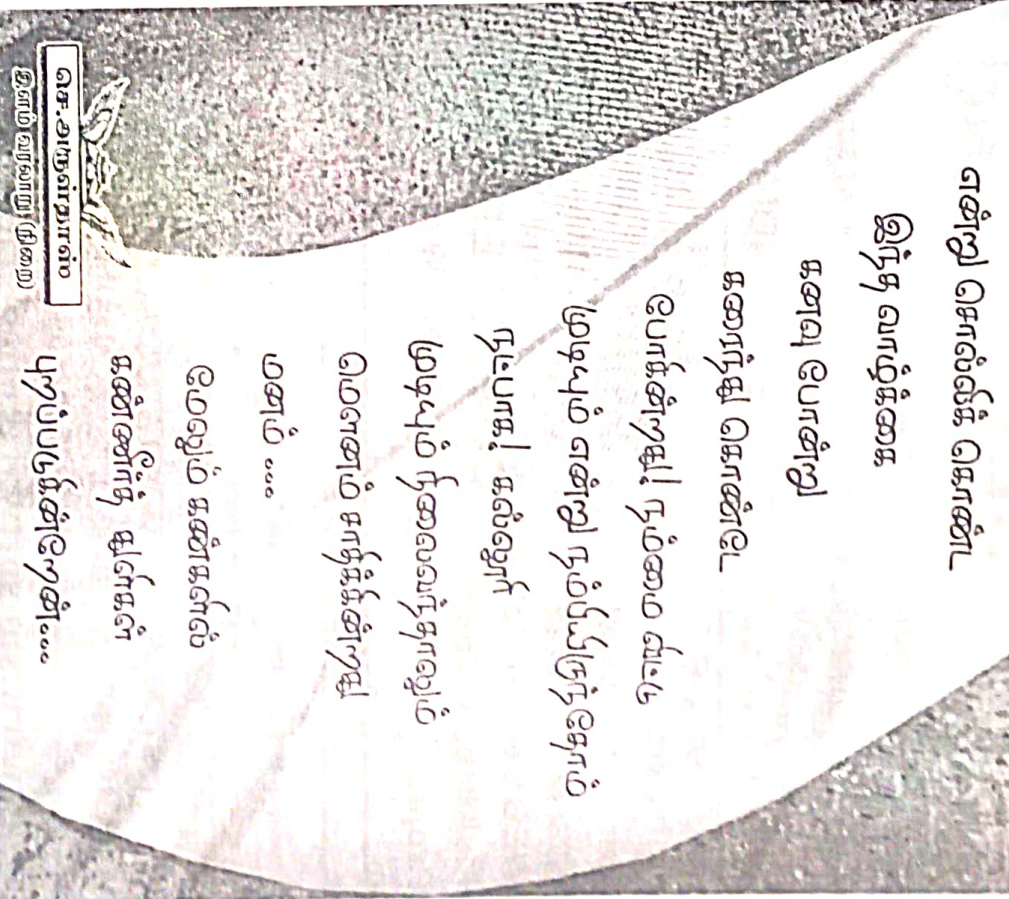 என்று சொல்லிக் கொண்ட
இந்த வாழ்க்கை
கனவு போன்று
கரைந்து கொண்டே
போகின்றது! நம்மை விட
முடியும் என்று நம்பியிருந்தோம்
நட்பாக! கல்லூரி
முடியும் நிலைவந்தாலும்
மௌனம் சாதிக்கின்றது
மனம் ...
மேலும் கண்களில்
கண்ணீர்த் துளிகள்
புறப்படுகின்றனே....
செ.அருள்தாஸ்
இளம் வரலாறு